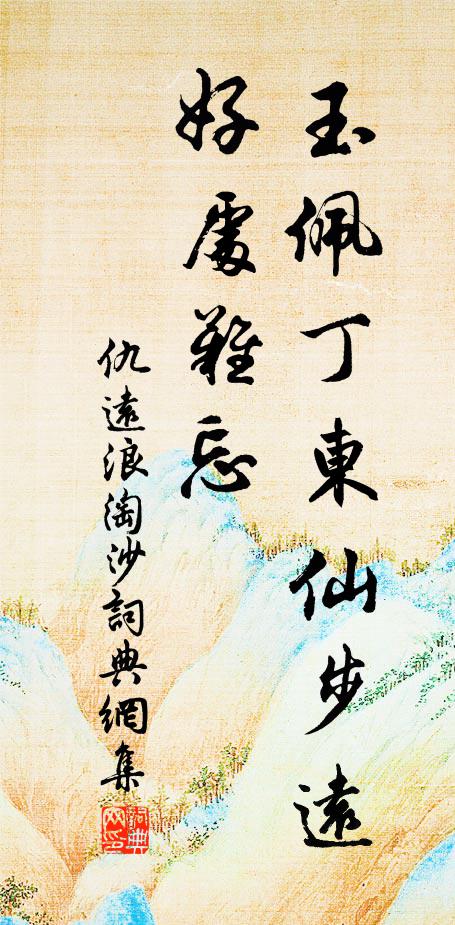 玉佩丁東仙步遠
好處難忘
仇遠浪淘沙詞典網集
詞典网印